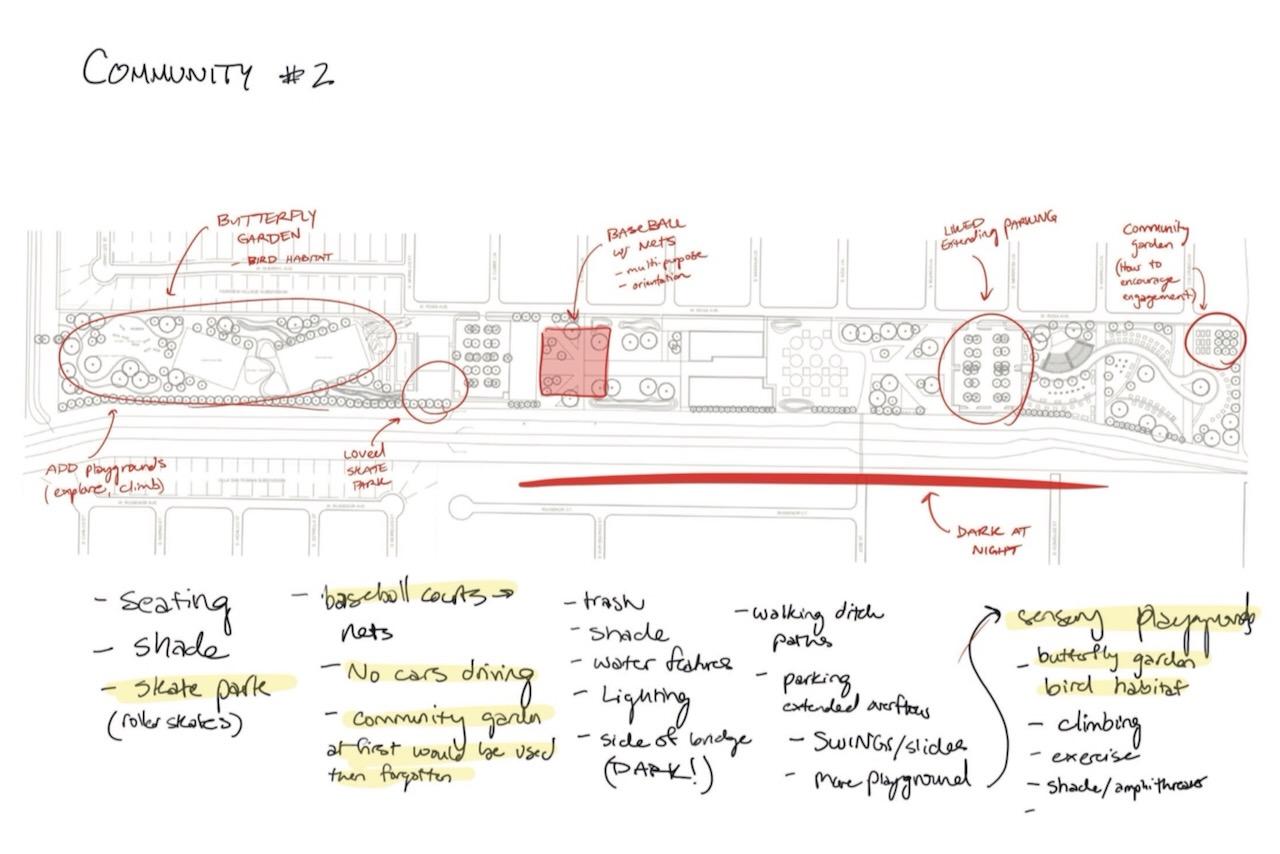 COMMUNITY #2
BUTTERFLY
GARDEN
- BIRD HABITAT
BASEBALL
w/ NETS
- multi-purpose
- orientation
LIKED
Extending PARKING
Community
garden
(How to
encourage
engagement)
ADD playgrounds
(explore, climb)
Loved
SKATE
PARK
DARK AT
NIGHT
- Seating
- shade
- skate park
(roller skates)
- baseball courts →
nets
- No cars driving
- community garden
at first would be used
then forgotten
- trash
- shade
- water features
- Lighting
- side of bridge
(DARK!)
- walking ditch
paths
- parking
extended overflow
- SWINGS/slides
- More playground
sensory playgrounds
- butterfly garden
bird habitat
- climbing
- exercise
- shade/
-